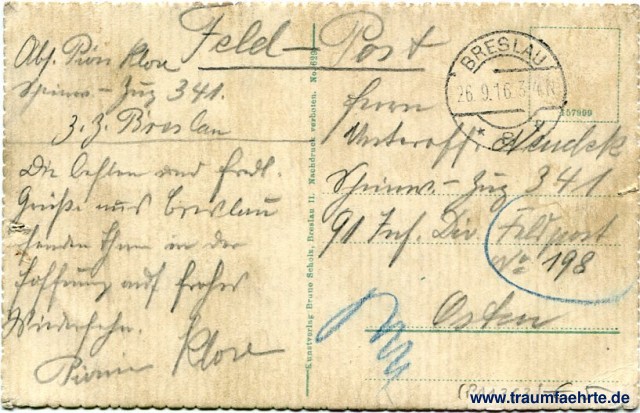 Feld-Post
Abs. Pion. Klose
Scheinw.-Zug 341.
z. Z. Breslau
Die besten und frdl.
Grüße aus Breslau
senden Ihnen in der
Hoffnung auf frohes
Wiedersehn.
Pionier Klose
Kunstverlag Bruno Scholz, Breslau II. Nachdruck verboten. No.
BRESLAU
26.9.16.
157909
Herrn
Unteroff. Wendek
Scheinw.-Zug 341
91 Inf. Div. Feldpost
No 198
Osten
www.traumfaehrte.de